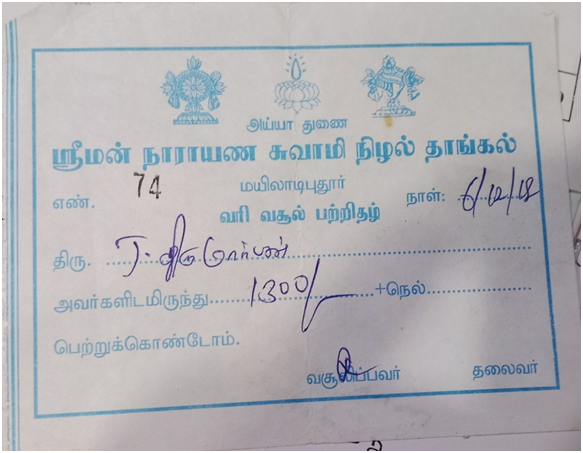 அய்யா துணை
ஸ்ரீமன் நாராயண சுவாமி நிழல் தாங்கல்
மயிலாடிபுதூர்
எண். 74 நாள்: 6/12/18
வரி வசூல் பற்றிதழ்
திரு. T.
அவர்களிடமிருந்து 1300/- +நெல்
பெற்றுக்கொண்டோம்.
வசூலிப்பவர் தலைவர்